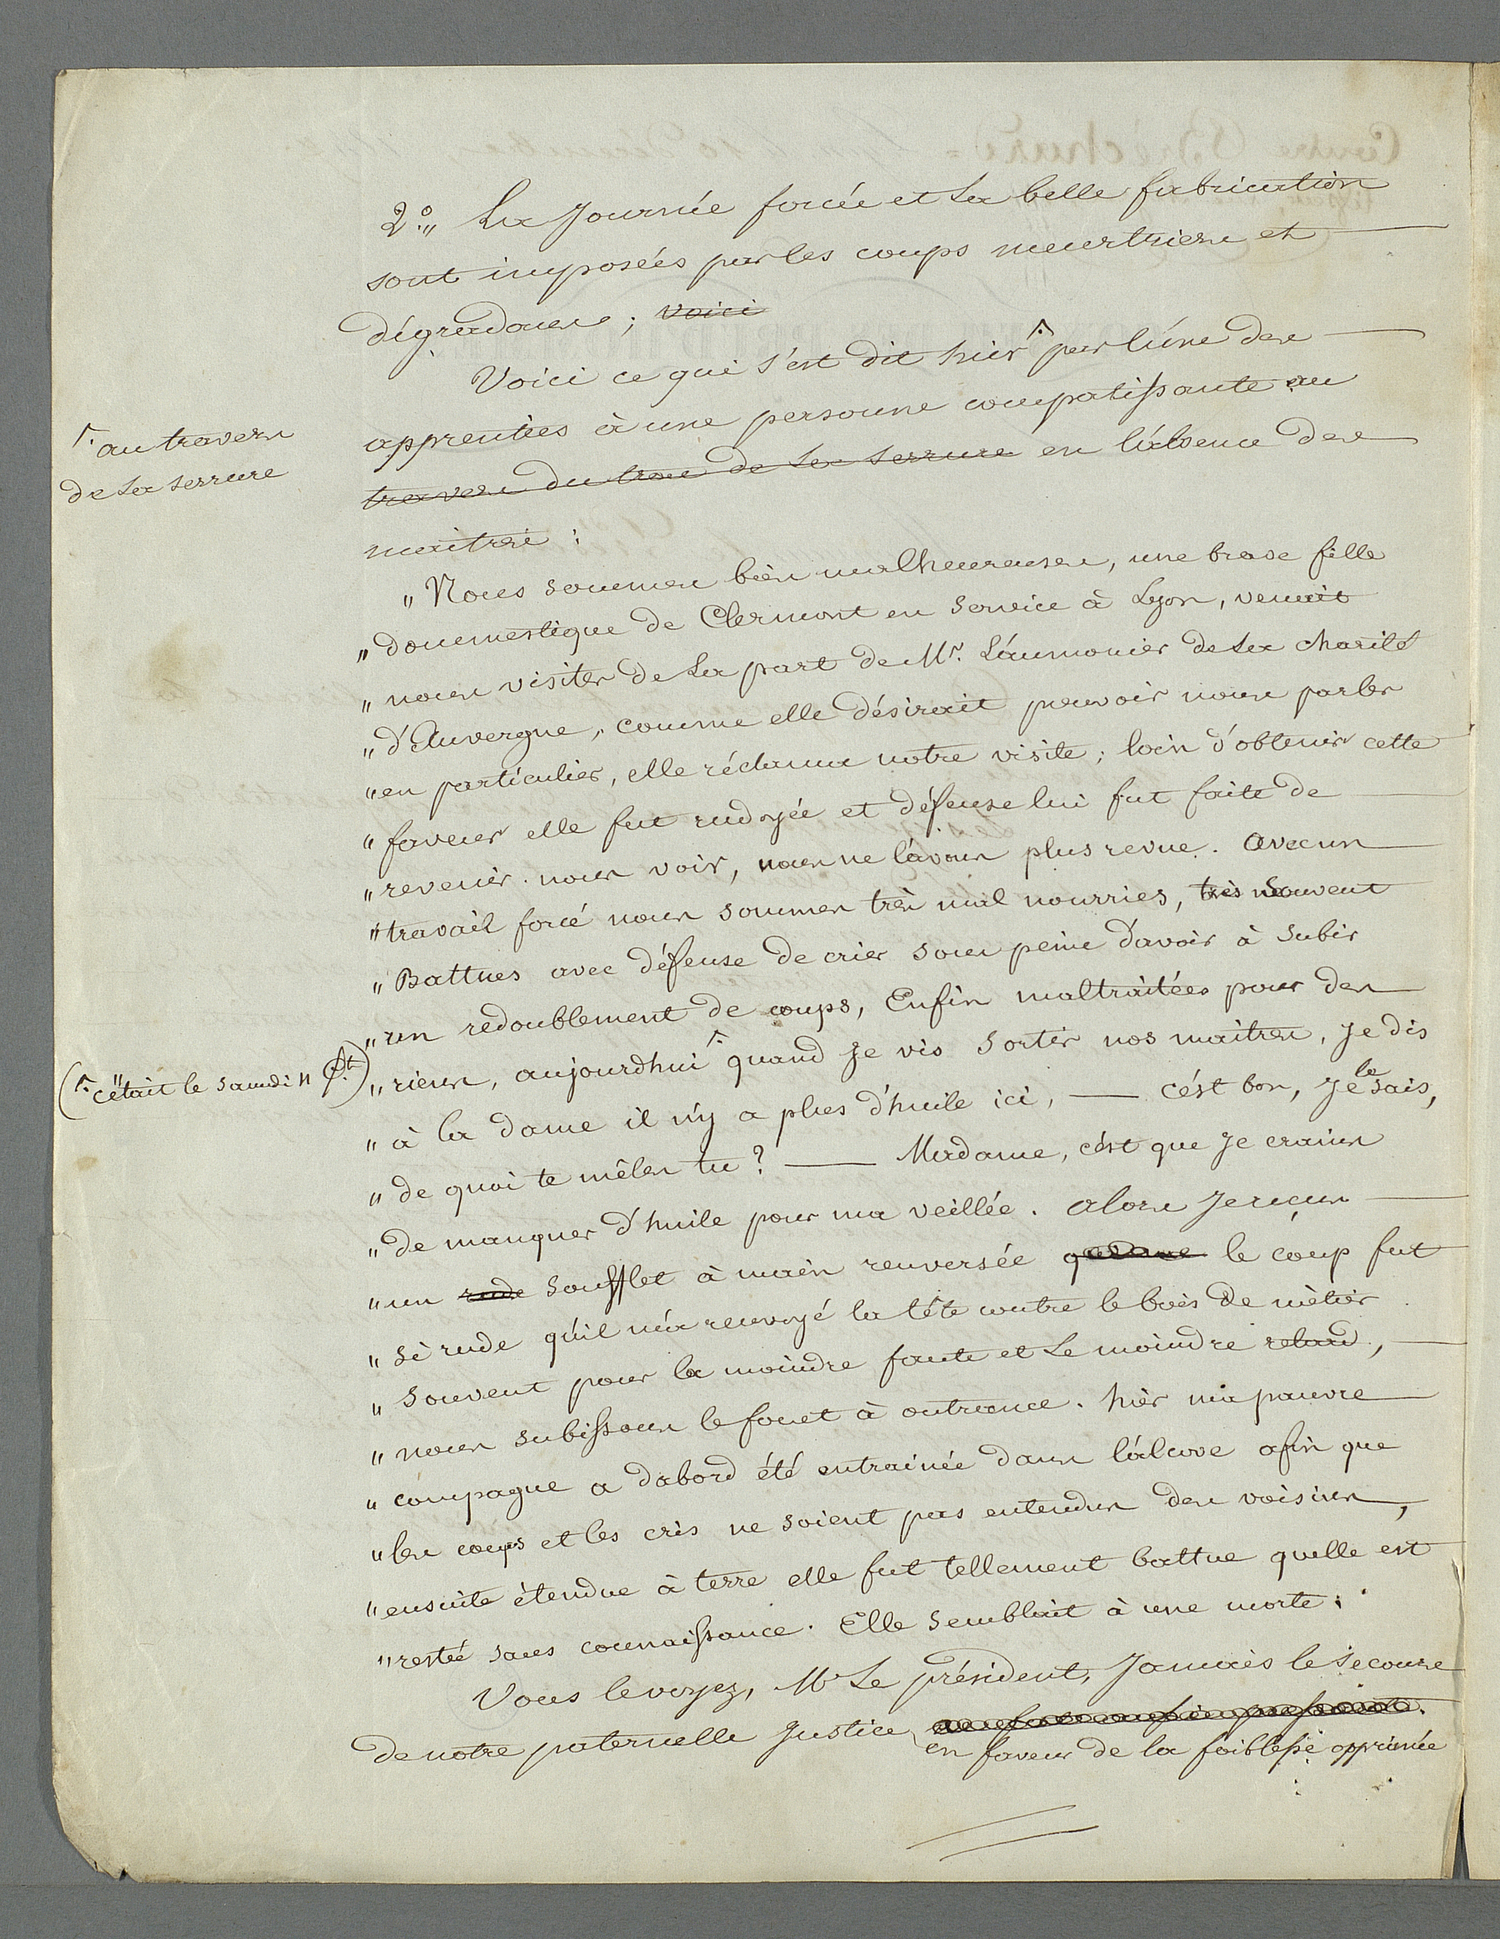 2°„ La Journée forcée et La belle fabrication
sont imposées par les coups meurtriers et
dégradans; voici
Voici ce qui s'est dit hier ^. par l'úne des
apprenties à une personne compatissante au
travers du trou de La serrure en l'absence des
maîtres :
^. au travers
de La serrure
„ Nous sommes bien malheureuses, une brave fille
„ doumestique de Clermont en service à Lyon, venait
„ nous visiter de La part de Mr. L'aumonier de La charité
„ d'Auvergne, comme elle désirait pouvoir nous parler
„ en particulier, elle réclama notre visite; loin d'obtenir cette
„ faveur elle fut rudoyée et défense lui fut faite de
„ revenir nous voir, nous ne l'avons plus revue. avec un
„ travail forcé nous sommes très mal nourries, très souvent
„ Battues avec défense de crier sous peine d'avoir à subir
„ un redoublement de coups, Enfin maltraitées pour des
„ riens, aujourdhui ^. quand je vis sortir nos maitres, je dis
(^. c'était le samdi 11 ct)
„ à la dame il n'y a plus d'huile ici, — c'ést bon, Je le sais,
„ de quoi te mêles tu? — Madame, c'ést que Je crains
„ de manquer d'huile pour ma veillée. alors Je reçus
„ un rude soufflet à main renversée le coup fut
„ si rude qu'il m'a renvoyé la tête contre le bois de mètier
„ souvent pour la moindre faute et Le moindre retard,
„ nous subissons le fouet à outrance. hièr ma pauvre
„ compagne a dabord été entrainée dans l'alcove afin que
„ les coups et les cris ne soient pas entendus des voisins,
„ ensuite étendue à terre elle fut tellement battue quelle est
„ restée sans connaissance. Elle semblait à une morte.
Vous le voyez, Mr Le président, Jamais le secours
de notre paternelle Justice
en faveur de la faiblesse opprimée